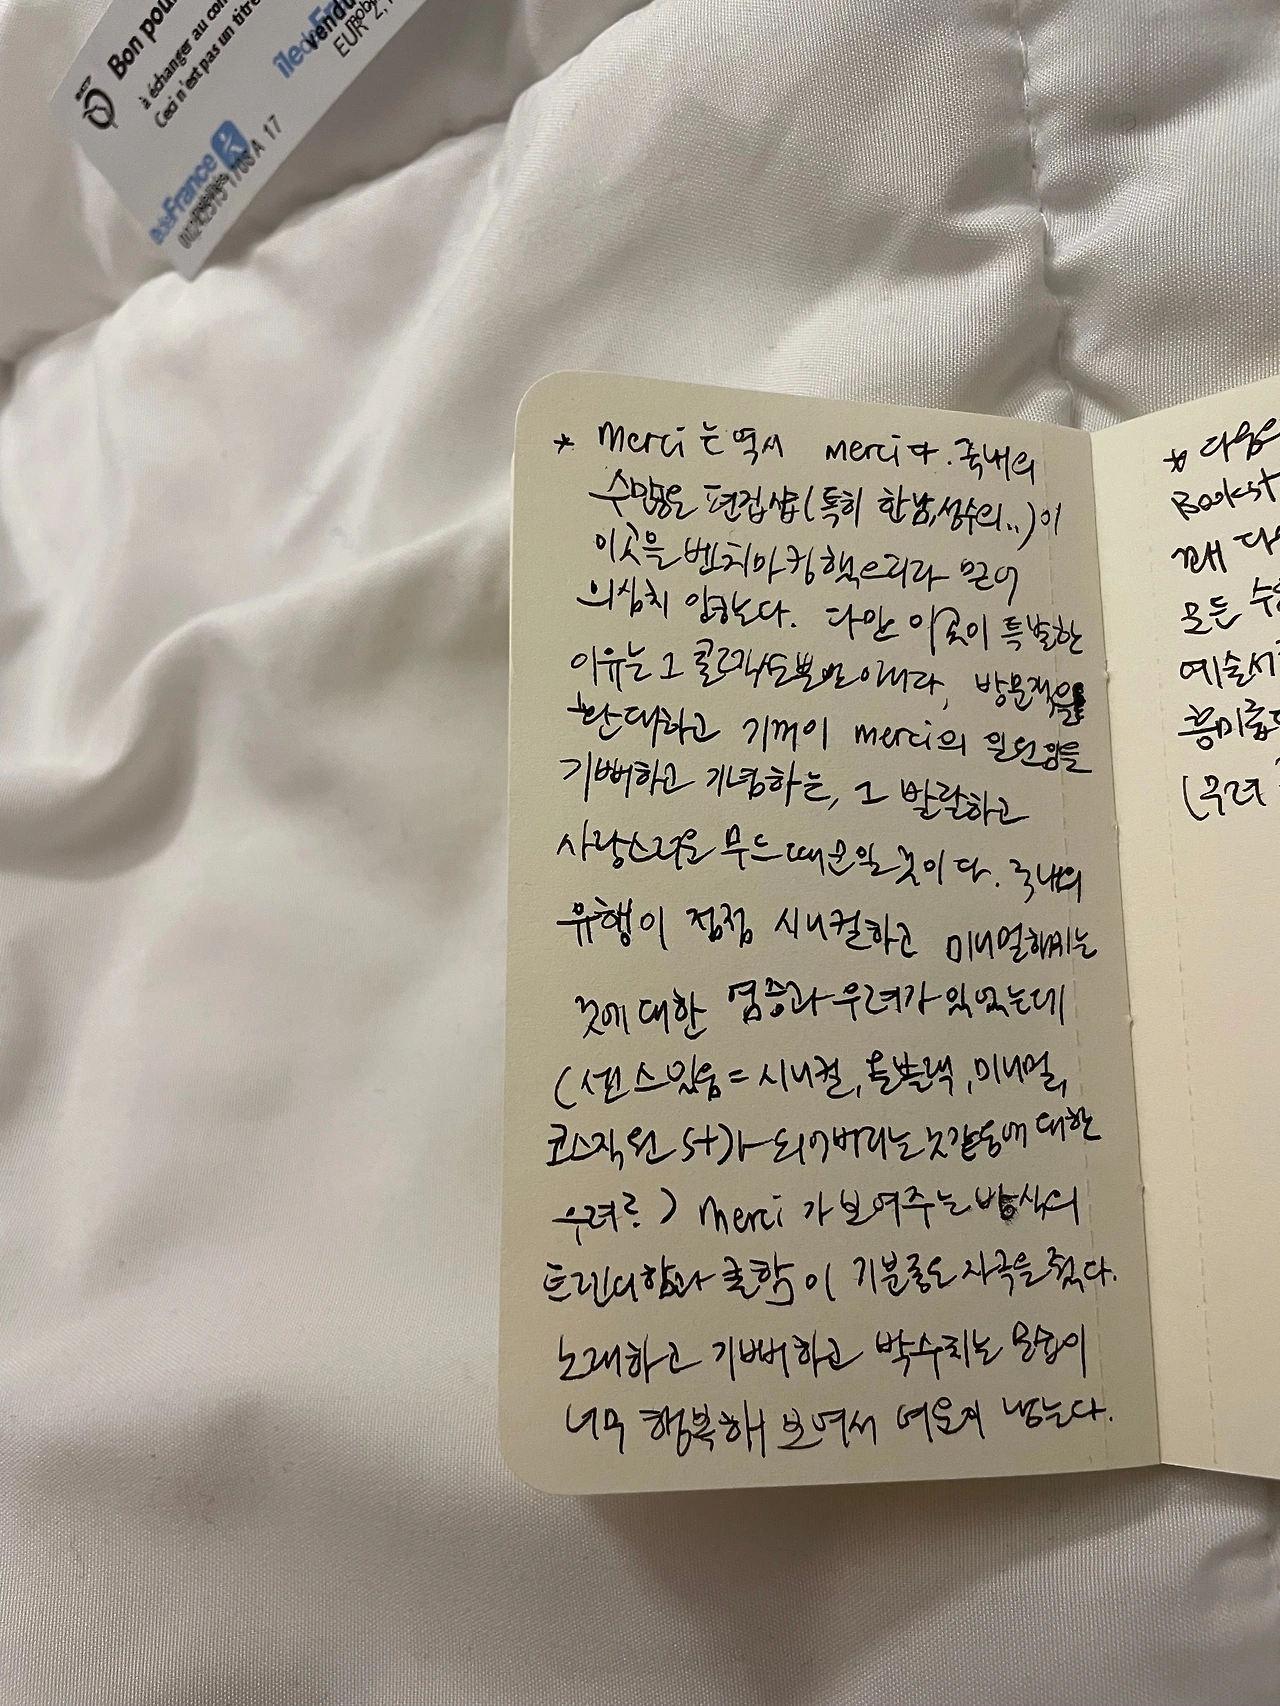 Bon pour
à échanger au com
Ceci n'est pas un titre
île de France
vendu
EUR 2,
France
17
* Merci는 역시 merci다. 국내의
수많은 편집샵(특히 한남,성수의..)이
이곳을 벤치마킹했으리라 믿어
의심치 않는다. 다만 이곳이 특별한
이유는 그 콜렉션뿐만 아니라, 방문객을
환대하고 기꺼이 merci의 일원임을
기뻐하고 기념하는, 그 발랄하고
사랑스러운 무드 때문일 것이다. 국내의
유행이 점점 시니컬하고 미니멀해지는
것에 대한 염증과 우려가 있었는데
(센스있음 = 시니컬, 올블랙, 미니멀,
코스직원 st)가 되어버리는 것 같음에 대한
우려?) Merci가 보여주는 방식의
트렌디함과 쿨함이 기분좋은 자극을 줬다.
노래하고 기뻐하고 박수치는 모습이
너무 행복해 보여서 여운이 남는다.
* 다음은
Bookst
꽤
모든
예술서
흥미롭
(무려